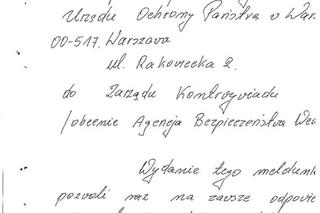 Urzędu Ochrony Państwa w War
00-517. Warszawa
ul. Rakowiecka 2.
do Zarządu Kontrwywiadu
/obecnie Agencja Bezpieczeństwa We
Wydanie tego meldunk
pozwoli nam na zawsze odpowie